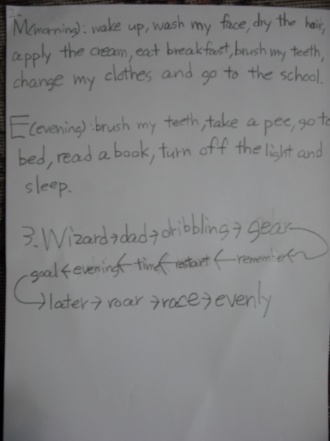 M(morning): wake up, wash my face, dry the hair,
apply the cream, eat breakfast, brush my teeth,
change my clothes and go to the school.
E(evening): brush my teeth, take a pee, go to
bed, read a book, turn off the light and
sleep.
3. Wizard→dad→dribbling→gear
goal←evening←time←restart←remember←
→later→roar→race→evenly